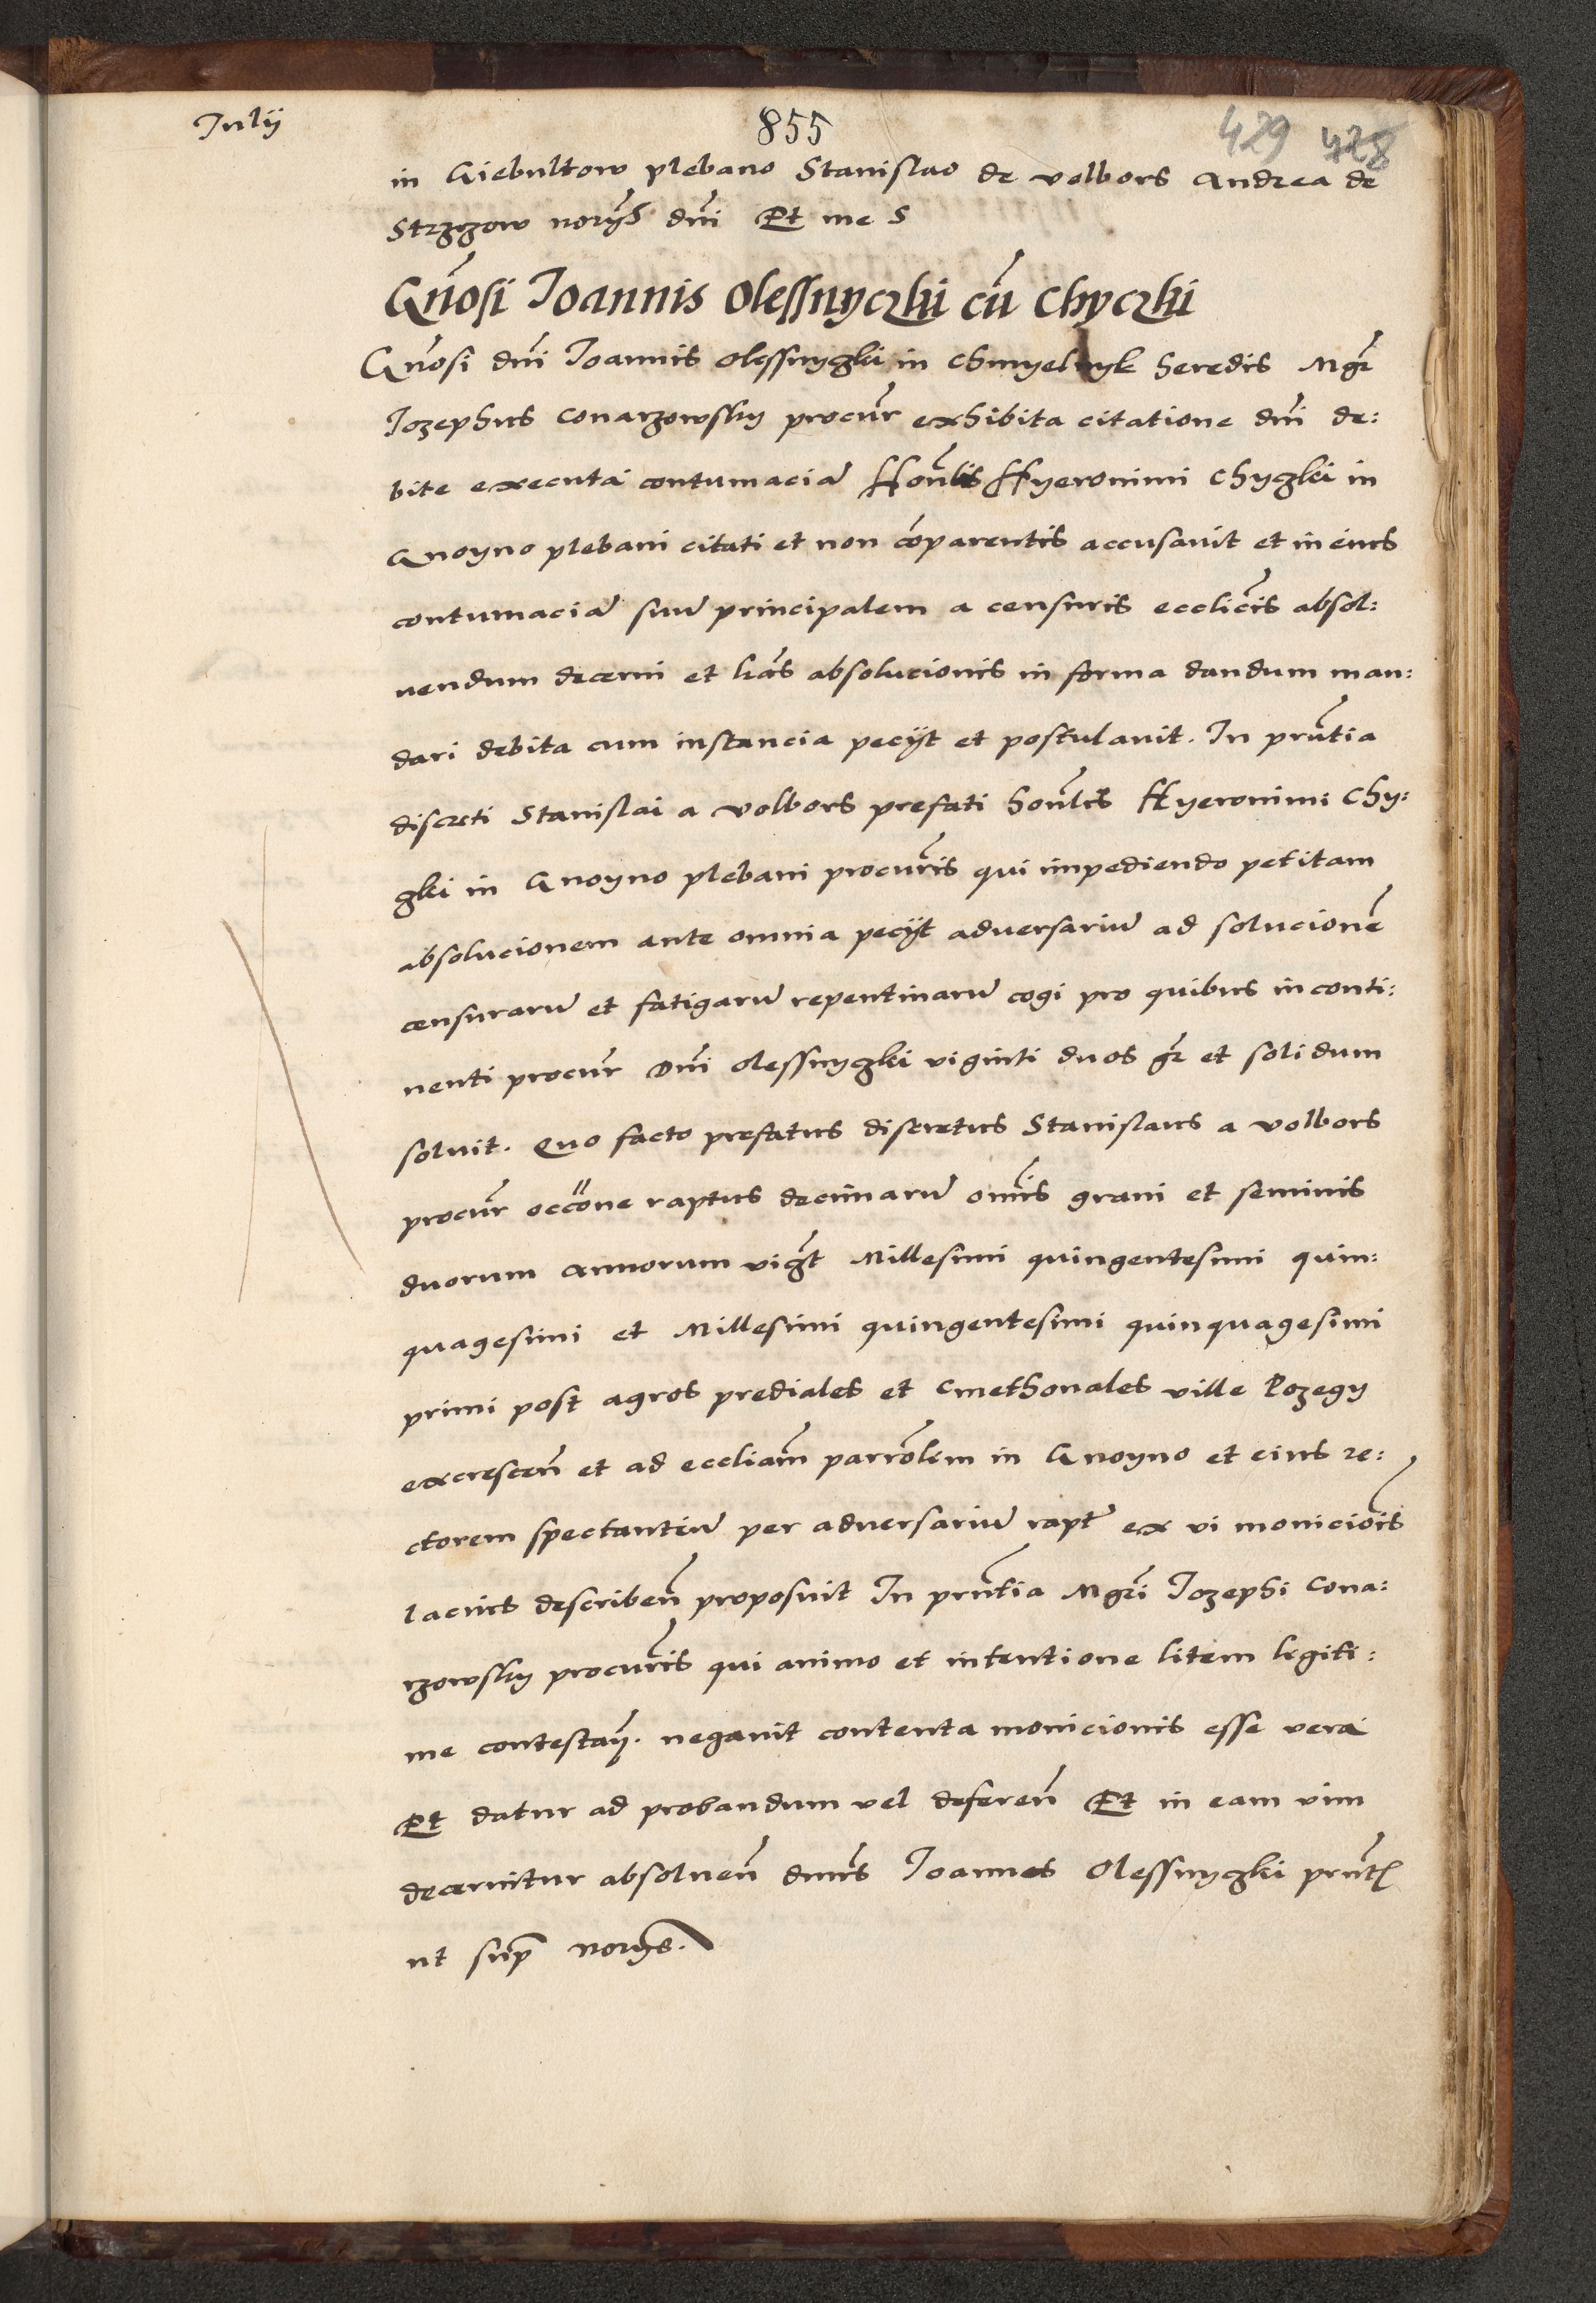 Julij
855
429 428
in Giebultow plebano Stanislao de volbors Andrea de
Strzyzow norijs dni Et me S
Gn̄osi Joannis Olessnyczki cū Chyczki
Gn̄osi dn̄i Joannis Olessnyczki in Chmyelnyk heredis Mgr̄
Jozephus Conarzowsky procur̄ exhibita citatione dn̄i de:
bite executa contumaciā Honl̄is Hyeronimi Chyczki in
Gnoyno plebani citati et non cōparentis accusavit et in eius
contumaciā suū principalem a censuris eccl̄icis absol:
uendum decerni et lrās absolucionis in forma dandum man:
dari debita cum instancia pecijt et postulauit. In prn̄tia
discreti Stanislai a volbors prefati honl̄is Hyeronimi Chy:
czki in Gnoyno plebani procur̄is qui impediendo petitam
absolucionem ante omnia pecijt adversariū ad solucionē
censurarū et fatigarū repentinarū cogi pro quibus in conti:
nenti procur̄ Dn̄i Olessnyczki viginti duos gr̄ et solidum
soluit. Quo facto prefatus discretus Stanislaus a volbors
procur̄ occōne raptus decimarū omīs grani et seminis
duorum annorum vigt̄ Millesimi quingentesimi quin:
quagesimi et Millesimi quingentesimi quinquagesimi
primi post agros prediales et cmethonales ville Pozegy
excrescen̄ et ad eccliam̄ parrōlem in Gnoyno et eius re:
ctorem spectantiū per adversariū rapt̄ ex vi moniciōis
lacius describen̄ proposuit In prn̄tia Mgr̄i Jozephi Cona:
rzowsky procur̄is qui animo et intentione litem legiti:
me contestan̄. negauit contenta monicionis esse vera
Et datur ad probandum vel deferen̄ Et in eam vim
decernitur absoluen̄ dn̄us Joannes Olessnyczki prn̄t
ut sup̄ norijs.